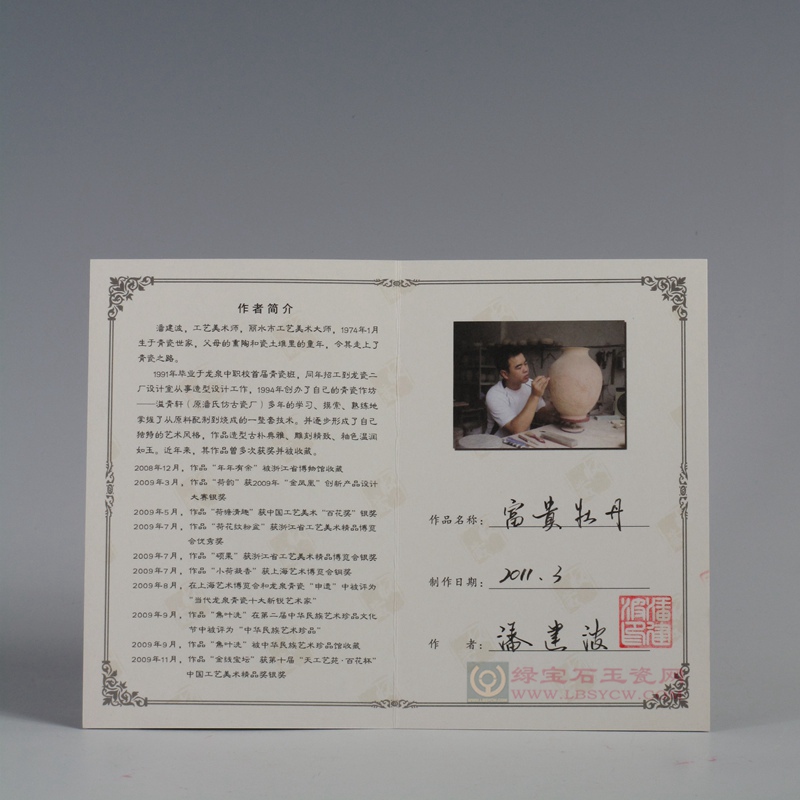 作者简介
潘建波，工艺美术师，丽水市工艺美术大师，1974年1月
生于青瓷世家，父母的熏陶和瓷土堆里的童年，令其走上了
青瓷之路。
1991年毕业于龙泉中职校首届青瓷班，同年招工到龙瓷二
厂设计室从事造型设计工作，1994年创办了自己的青瓷作坊
——温青轩（原潘氏仿古瓷厂）多年的学习、摸索、熟练地
掌握了从原料配制到烧成的一整套技术。并逐步形成了自己
独特的艺术风格，作品造型古朴典雅、雕刻精致、釉色温润
如玉。近年来，其作品曾多次获奖并被收藏。
2008年12月，作品“年年有余”被浙江省博物馆收藏
2009年3月，作品“荷韵”获2009年“金凤凰”创新产品设计
大赛银奖
2009年5月，作品“荷塘清趣”获中国工艺美术“百花奖”银奖
2009年7月，作品“荷花纹粉盒”获浙江省工艺美术精品博览
会优秀奖
2009年7月，作品“硕果”获浙江省工艺美术精品博览会银奖
2009年7月，作品“小荷凝香”获上海艺术博览会铜奖
2009年8月，在上海艺术博览会和龙泉青瓷“申遗”中被评为
“当代龙泉青瓷十大新锐艺术家”
2009年9月，作品“蕉叶洗”在第二届中华民族艺术珍品文化
节中被评为“中华民族艺术珍品”
2009年9月，作品“蕉叶洗”被中华民族艺术珍品馆收藏
2009年11月，作品“金钱宝坛”获第十届“天工艺苑·百花杯”
中国工艺美术精品奖银奖
作品名称：富贵牡丹
制作日期：2011.3
作 者：潘建波
潘建波印
绿宝石玉瓷网
WWW.LBSYCW.COM